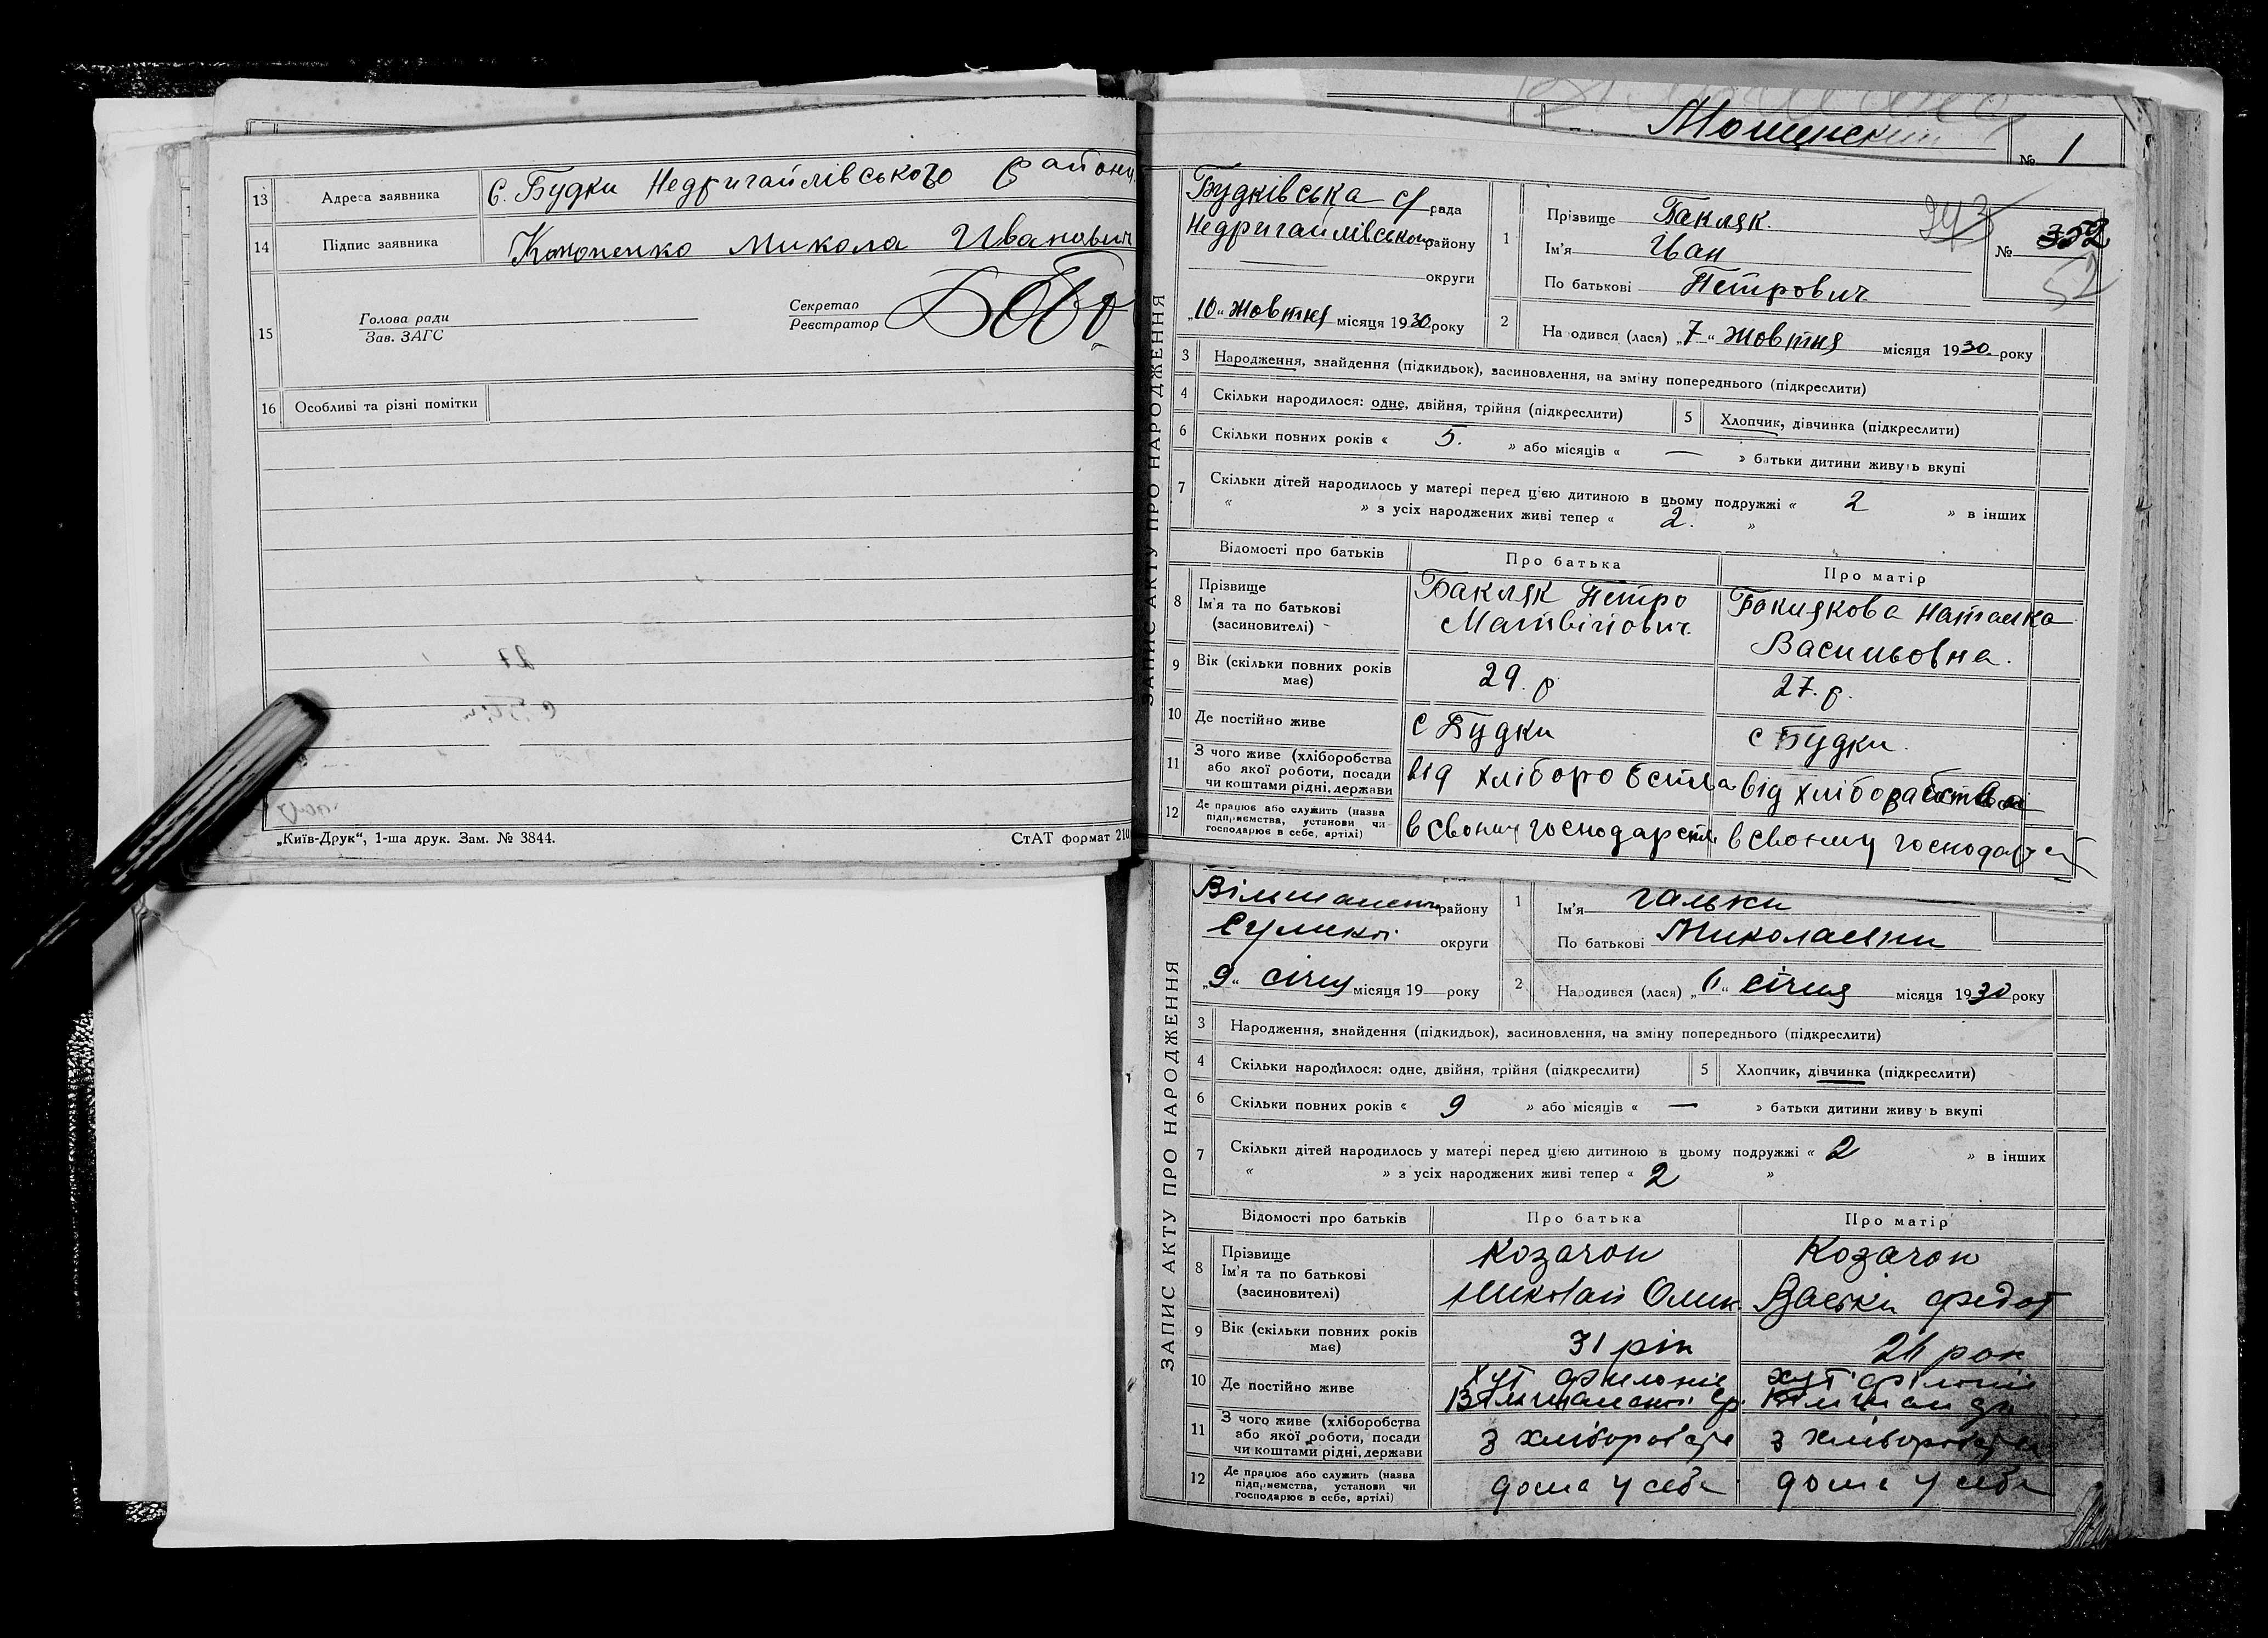 13 Адреса заявника С. Будки Недригайлівського району
14 Підпис заявника Кононенко Микола Иванович
15 Голова ради
Зав. ЗАГС
Секретар
Реєстратор
16 Особливі та різні помітки
„Київ-Друк“, 1-ша друк. Зам. № 3844. СтАТ формат 210
№ 1
ЗАПИС АКТУ ПРО НАРОДЖЕННЯ
Будківська с/ рада
Недригайлівського району
округи
„10“ Жовтня місяця 1930 року
1 Прізвище Бакляк.
Ім'я Іван
По батькові Петрович
№ 352
52
2 Народився (лася) „7“ Жовтня місяця 1930 року
3 Народження, знайдення (підкидьок), засиновлення, на зміну попереднього (підкреслити)
4 Скільки народилося: одне, двійня, трійня (підкреслити) 5 Хлопчик, дівчинка (підкреслити)
6 Скільки повних років « 5. » або місяців « — » батьки дитини живуть вкупі
7 Скільки дітей народилось у матері перед цією дитиною в цьому подружжі « 2 » в інших
« » з усіх народжених живі тепер « 2. »
Відомості про батьків Про батька Про матір
8 Прізвище
Ім'я та по батькові
(засновителі)
Бакляк Петро
Матвійович.
Баклякова Наталка
Васильовна.
9 Вік (скільки повних років має) 29. р 27. р.
10 Де постійно живе с Будки с Будки.
11 З чого живе (хліборобства
або якої роботи, посади
чи коштами рідні, держави
від хліборобства від хліборобства
12 Де працює або служить (назва
підприємства, установи чи
господарює в себе, артілі)
в своему господарств в своему господарст
ЗАПИС АКТУ ПРО НАРОДЖЕННЯ
району
округи
„9“ січня місяця 19 року
1 Ім'я Гальки
По батькові Миколаевни
2 Народився (лася) січня місяця 1930 року
3 Народження, знайдення (підкидьок), засиновлення, на зміну попереднього (підкреслити)
4 Скільки народилося: одне, двійня, трійня (підкреслити) 5 Хлопчик, дівчинка (підкреслити)
6 Скільки повних років « 9 » або місяців « — » батьки дитини живуть вкупі
7 Скільки дітей народилось у матері перед цією дитиною в цьому подружжі « 2 » в інших
« » з усіх народжених живі тепер « 2 »
Відомості про батьків Про батька Про матір
8 Прізвище
Ім'я та по батькові
(засиновителі)
Козачок
Николай
Козачок
Федот
9 Вік (скільки повних років має) 31 рік
10 Де постійно живе
11 З чого живе (хліборобства
або якої роботи, посади
чи коштами рідні, держави
12 Де працює або служить (назва
підприємства, установи чи
господарює в себе, артілі)
дома у себе дома у себе